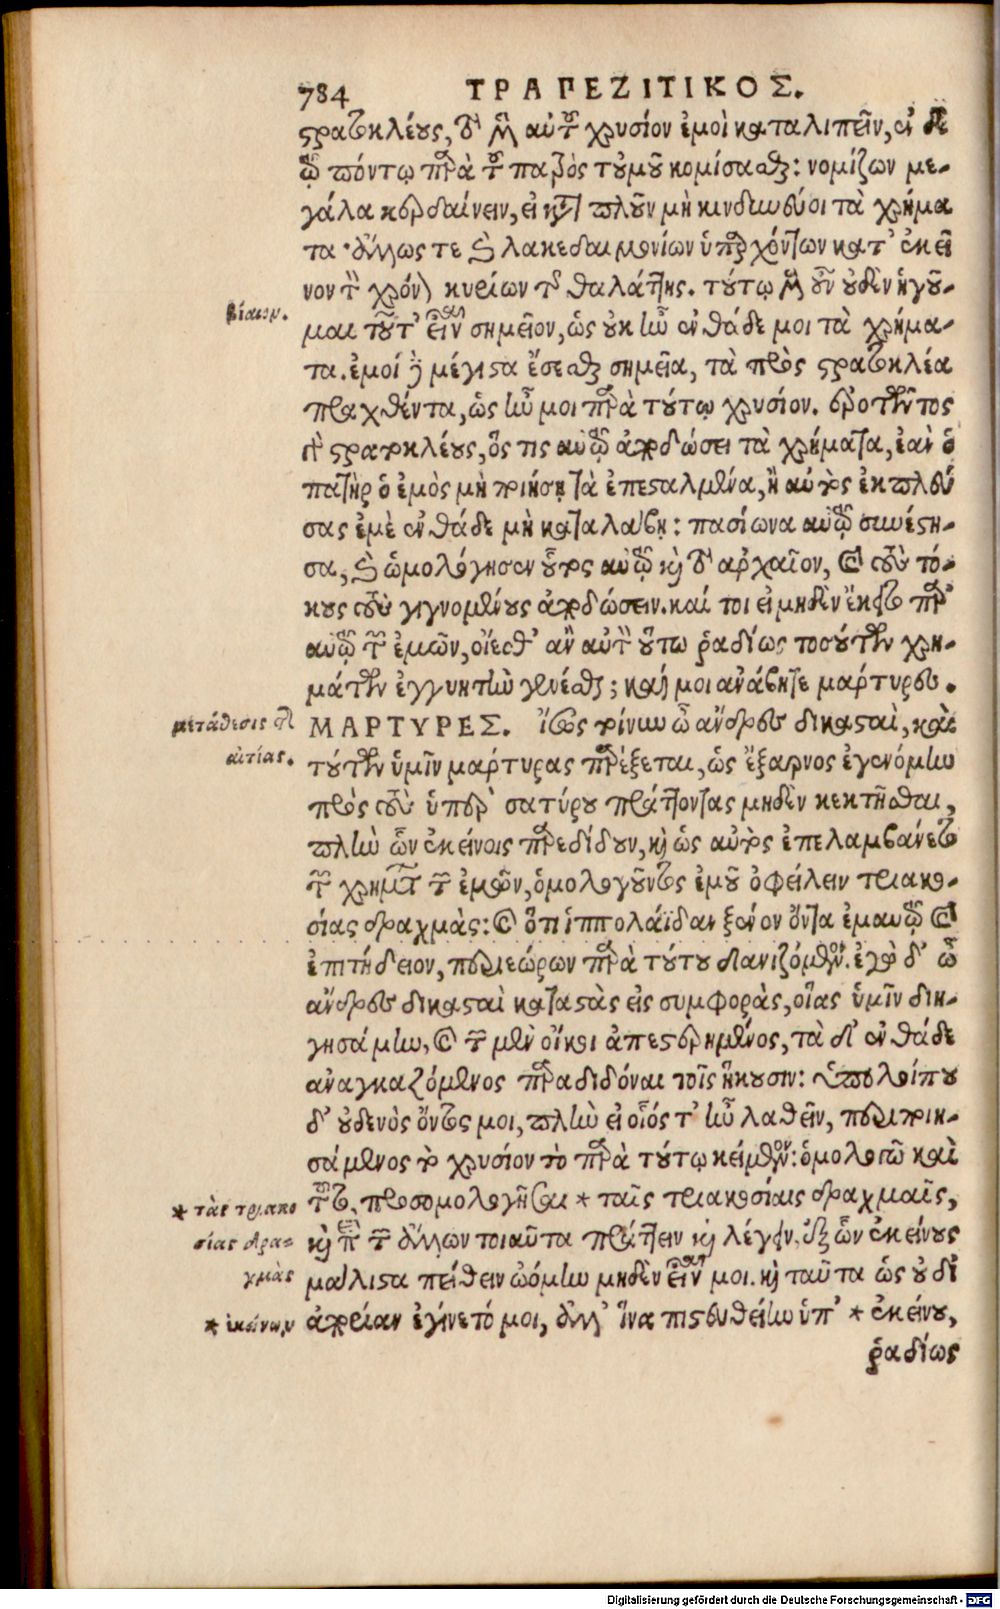 784 ΤΡΑΠΕΖΙΤΙΚΟΣ.
στρατοκλέους, τὸ μὲν αὐτοῦ χρυσίον ἐμοὶ καταλιπεῖν, ἐν δὲ
τῷ πόντῳ παρὰ τοῦ πατρὸς τοὐμοῦ κομίσασθαι: νομίζων με-
γάλα κερδαίνειν, εἰ κατὰ πλοῦν μὴ κινδυνεύοι τὰ χρήμα
τα· ἄλλως τε καὶ λακεδαιμονίων ὑπαρχόντων κατ' ἐκεῖ
νον τὸν χρόνον κυρίων τῆς θαλάττης. τούτῳ μὲν οὖν οὐδὲν ἡγοῦ-
μαι τοῦτ' εἶναι σημεῖον, ὡς οὐκ ἦν ἐνθάδε μοι τὰ χρήμα-
τα. ἐμοί δὲ μέγιστα ἔσεσθαι σημεῖα, τὰ πρὸς στρατοκλέα
πραχθέντα, ὡς ἦν μοι παρὰ τούτῳ χρυσίον. ἐρωτῶντος
γὰρ στρατοκλέους, ὅς τις αὐτῷ ἀποδώσει τὰ χρήματα, ἐὰν ὁ
πατὴρ ὁ ἐμὸς μὴ ποιήσῃ τὰ ἐπεσταλμένα, ἢ αὐτὸς ἐκπλεύ
σας ἐμὲ ἐνθάδε μὴ καταλάβῃ: πασίωνα αὐτῷ συνέστη-
σα, καὶ ὡμολόγησεν οὗτος αὐτῷ καὶ τὸ ἀρχαῖον, καὶ τοὺς τό-
κους τοὺς γιγνομένους ἀποδώσειν. καί τοι εἰ μηδὲν ἔκειτο παρ'
αὐτῷ τῶν ἐμῶν, οἴεσθ' ἂν αὐτὸν οὕτω ῥαδίως τοσούτων χρη-
μάτων ἐγγυητὴν γενέσθαι; καί μοι ἀνάβητε μάρτυρες.
ΜΑΡΤΥΡΕΣ. ἴσως τοίνυν ὦ ἄνδρες δικασταὶ, καὶ
τούτων ὑμῖν μάρτυρας παρέξεται, ὡς ἔξαρνος ἐγενόμην
πρὸς τοὺς ὑπὲρ σατύρου πράττοντας μηδὲν κεκτῆσθαι,
πλὴν ὧν ἐκείνοις παρεδίδουν, καὶ ὡς αὐτὸς ἐπελαμβάνετο
τῶν χρημάτων τῶν ἐμῶν, ὁμολογοῦντος ἐμοῦ ὀφείλειν τριακο-
σίας δραχμὰς: καὶ ὅτι ἱππολάϊδαν ξένον ὄντα ἐμαυτῷ καὶ
ἐπιτήδειον, περιεώρων παρὰ τούτου δανιζόμενον. ἐγὼ δ' ὦ
ἄνδρες δικασταὶ καταστὰς εἰς συμφορὰς, οἵας ὑμῖν διη-
γησάμην, καὶ τῶν μὲν οἴκοι ἀπεστερημένος, τὰ δ' ἐνθάδε
ἀναγκαζόμενος παραδιδόναι τοῖς ἥκουσιν: ὑπολοίπου
δ' οὐδενὸς ὄντος μοι, πλὴν εἰ οἷός τ' ἦν λαθεῖν, περιποιη-
σάμενος τὸ χρυσίον τὸ παρὰ τούτῳ κείμενον: ὁμολογῶ καὶ
τούτῳ, προσομολογῆσαι * ταῖς τριακοσίαις δραχμαῖς,
καὶ περὶ τῶν ἄλλων τοιαῦτα πράττειν καὶ λέγειν, ἐξ ὧν ἐκείνους
μάλιστα πείθειν ᾠόμην μηδὲν εἶναί μοι. καὶ ταῦτα ὡς οὐ δι'
ἀπορίαν ἐγίνετό μοι, ἀλλ' ἵνα πιστευθείην ὑπ' * ἐκείνου,
ῥαδίως
βίαιον.
μετάθεσις τῆς
αἰτίας.
* τὰς τριακο
σίας δρα=
χμὰς
* ἐκείνων
Digitalisierung gefördert durch die Deutsche Forschungsgemeinschaft - DFG